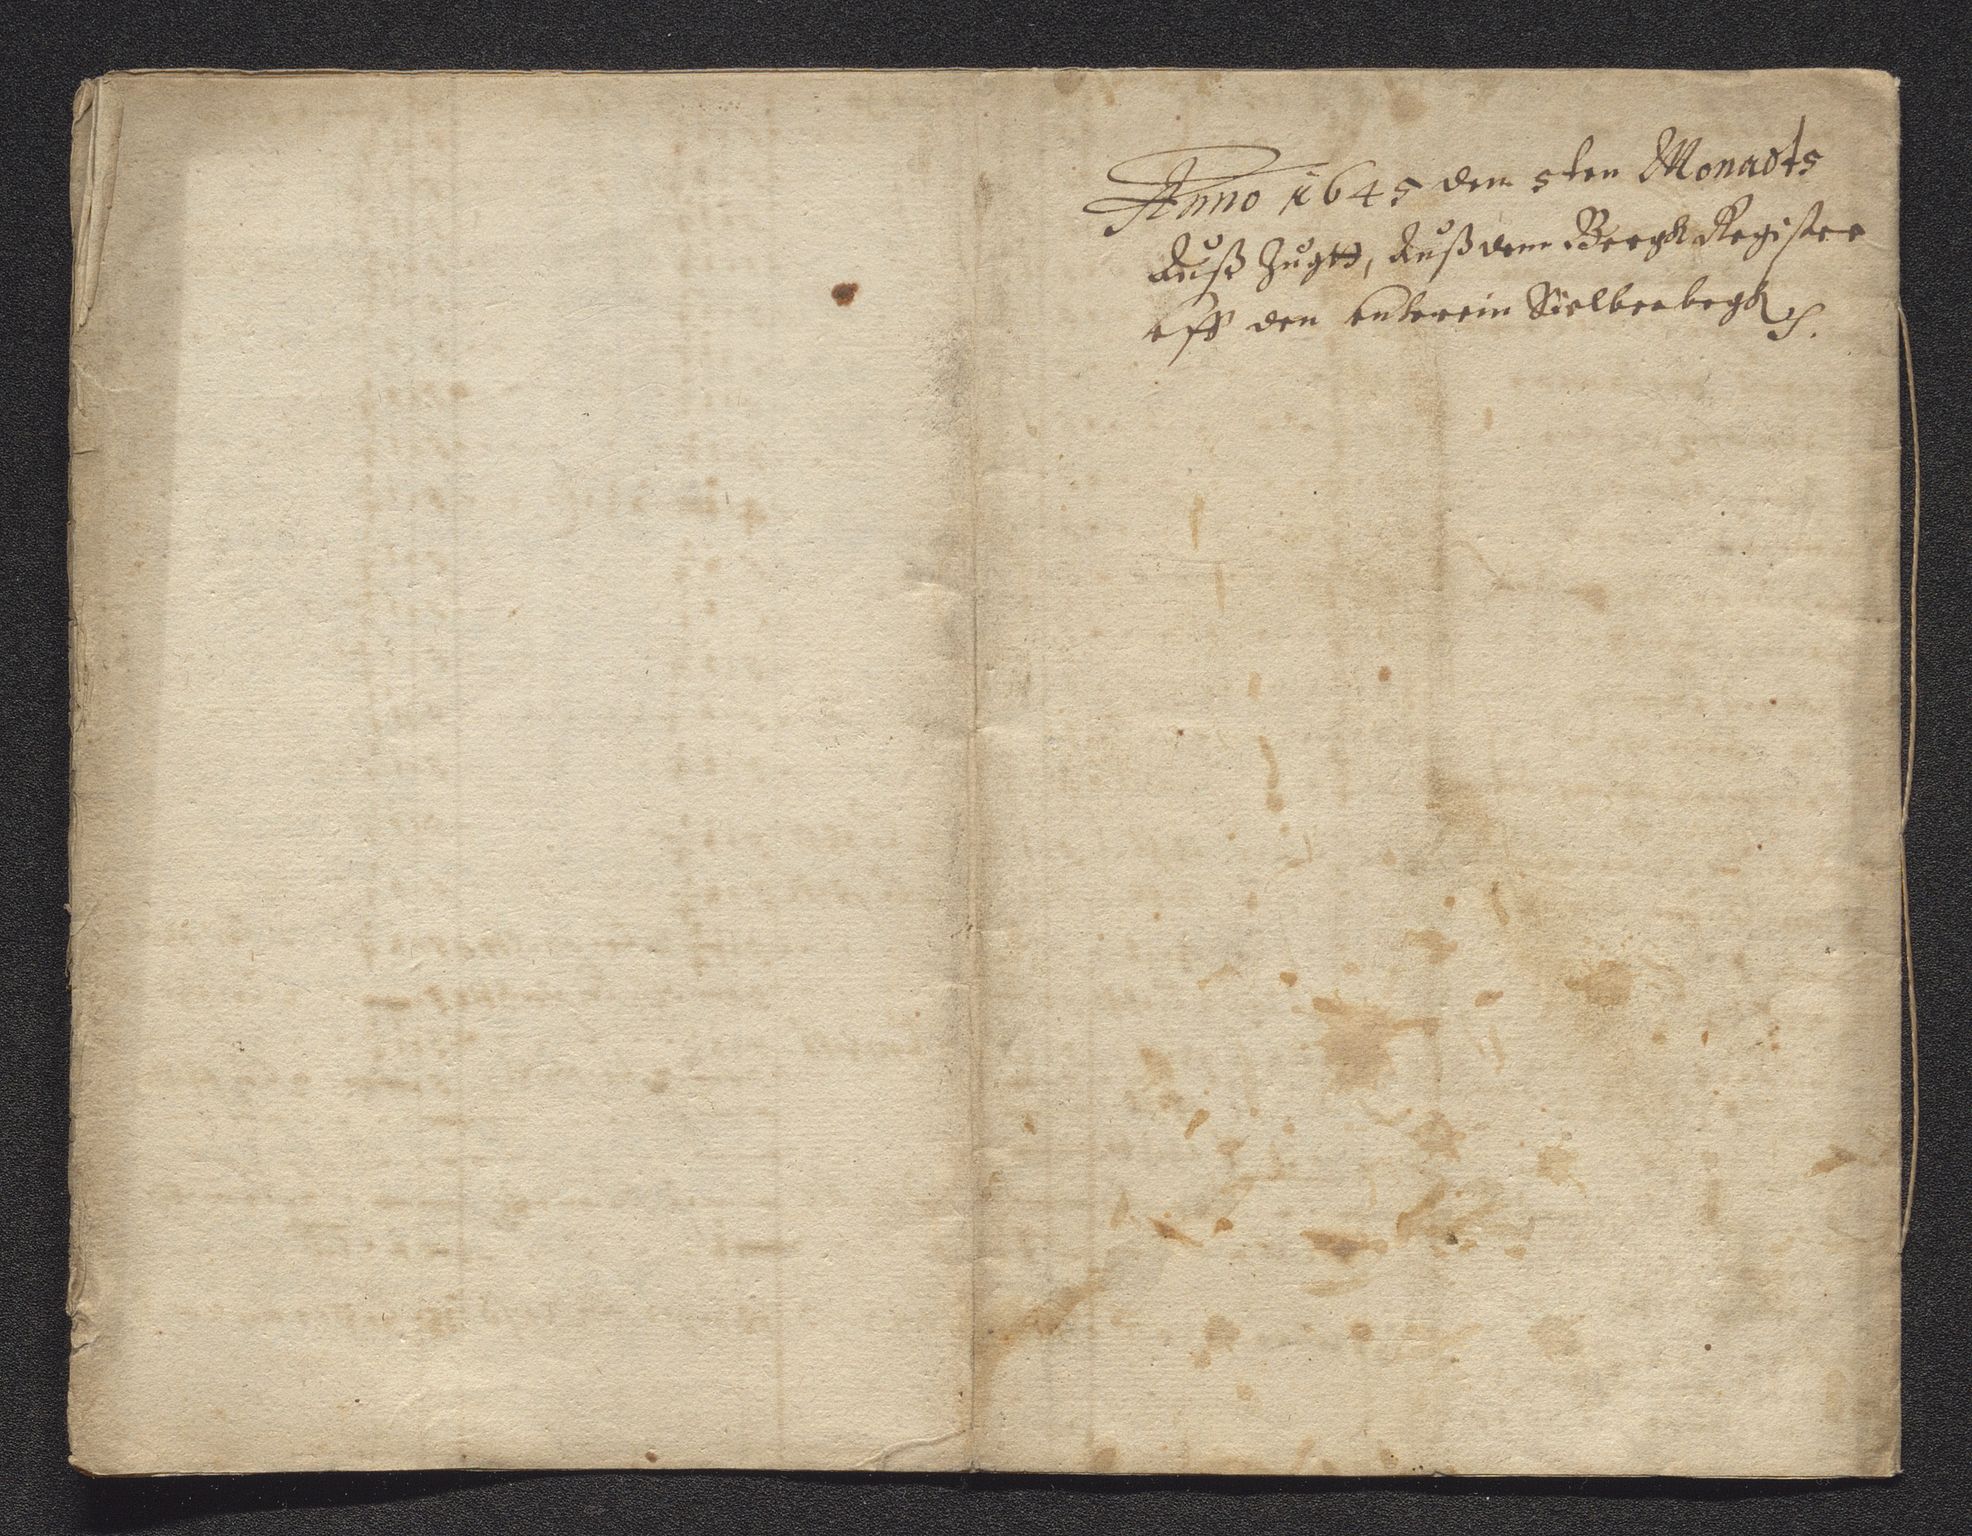 Anno 1645 dem 5ten Monadts
Auß Zugtt, Auß dem Bergk Register
vff den unterein Sielberbegk